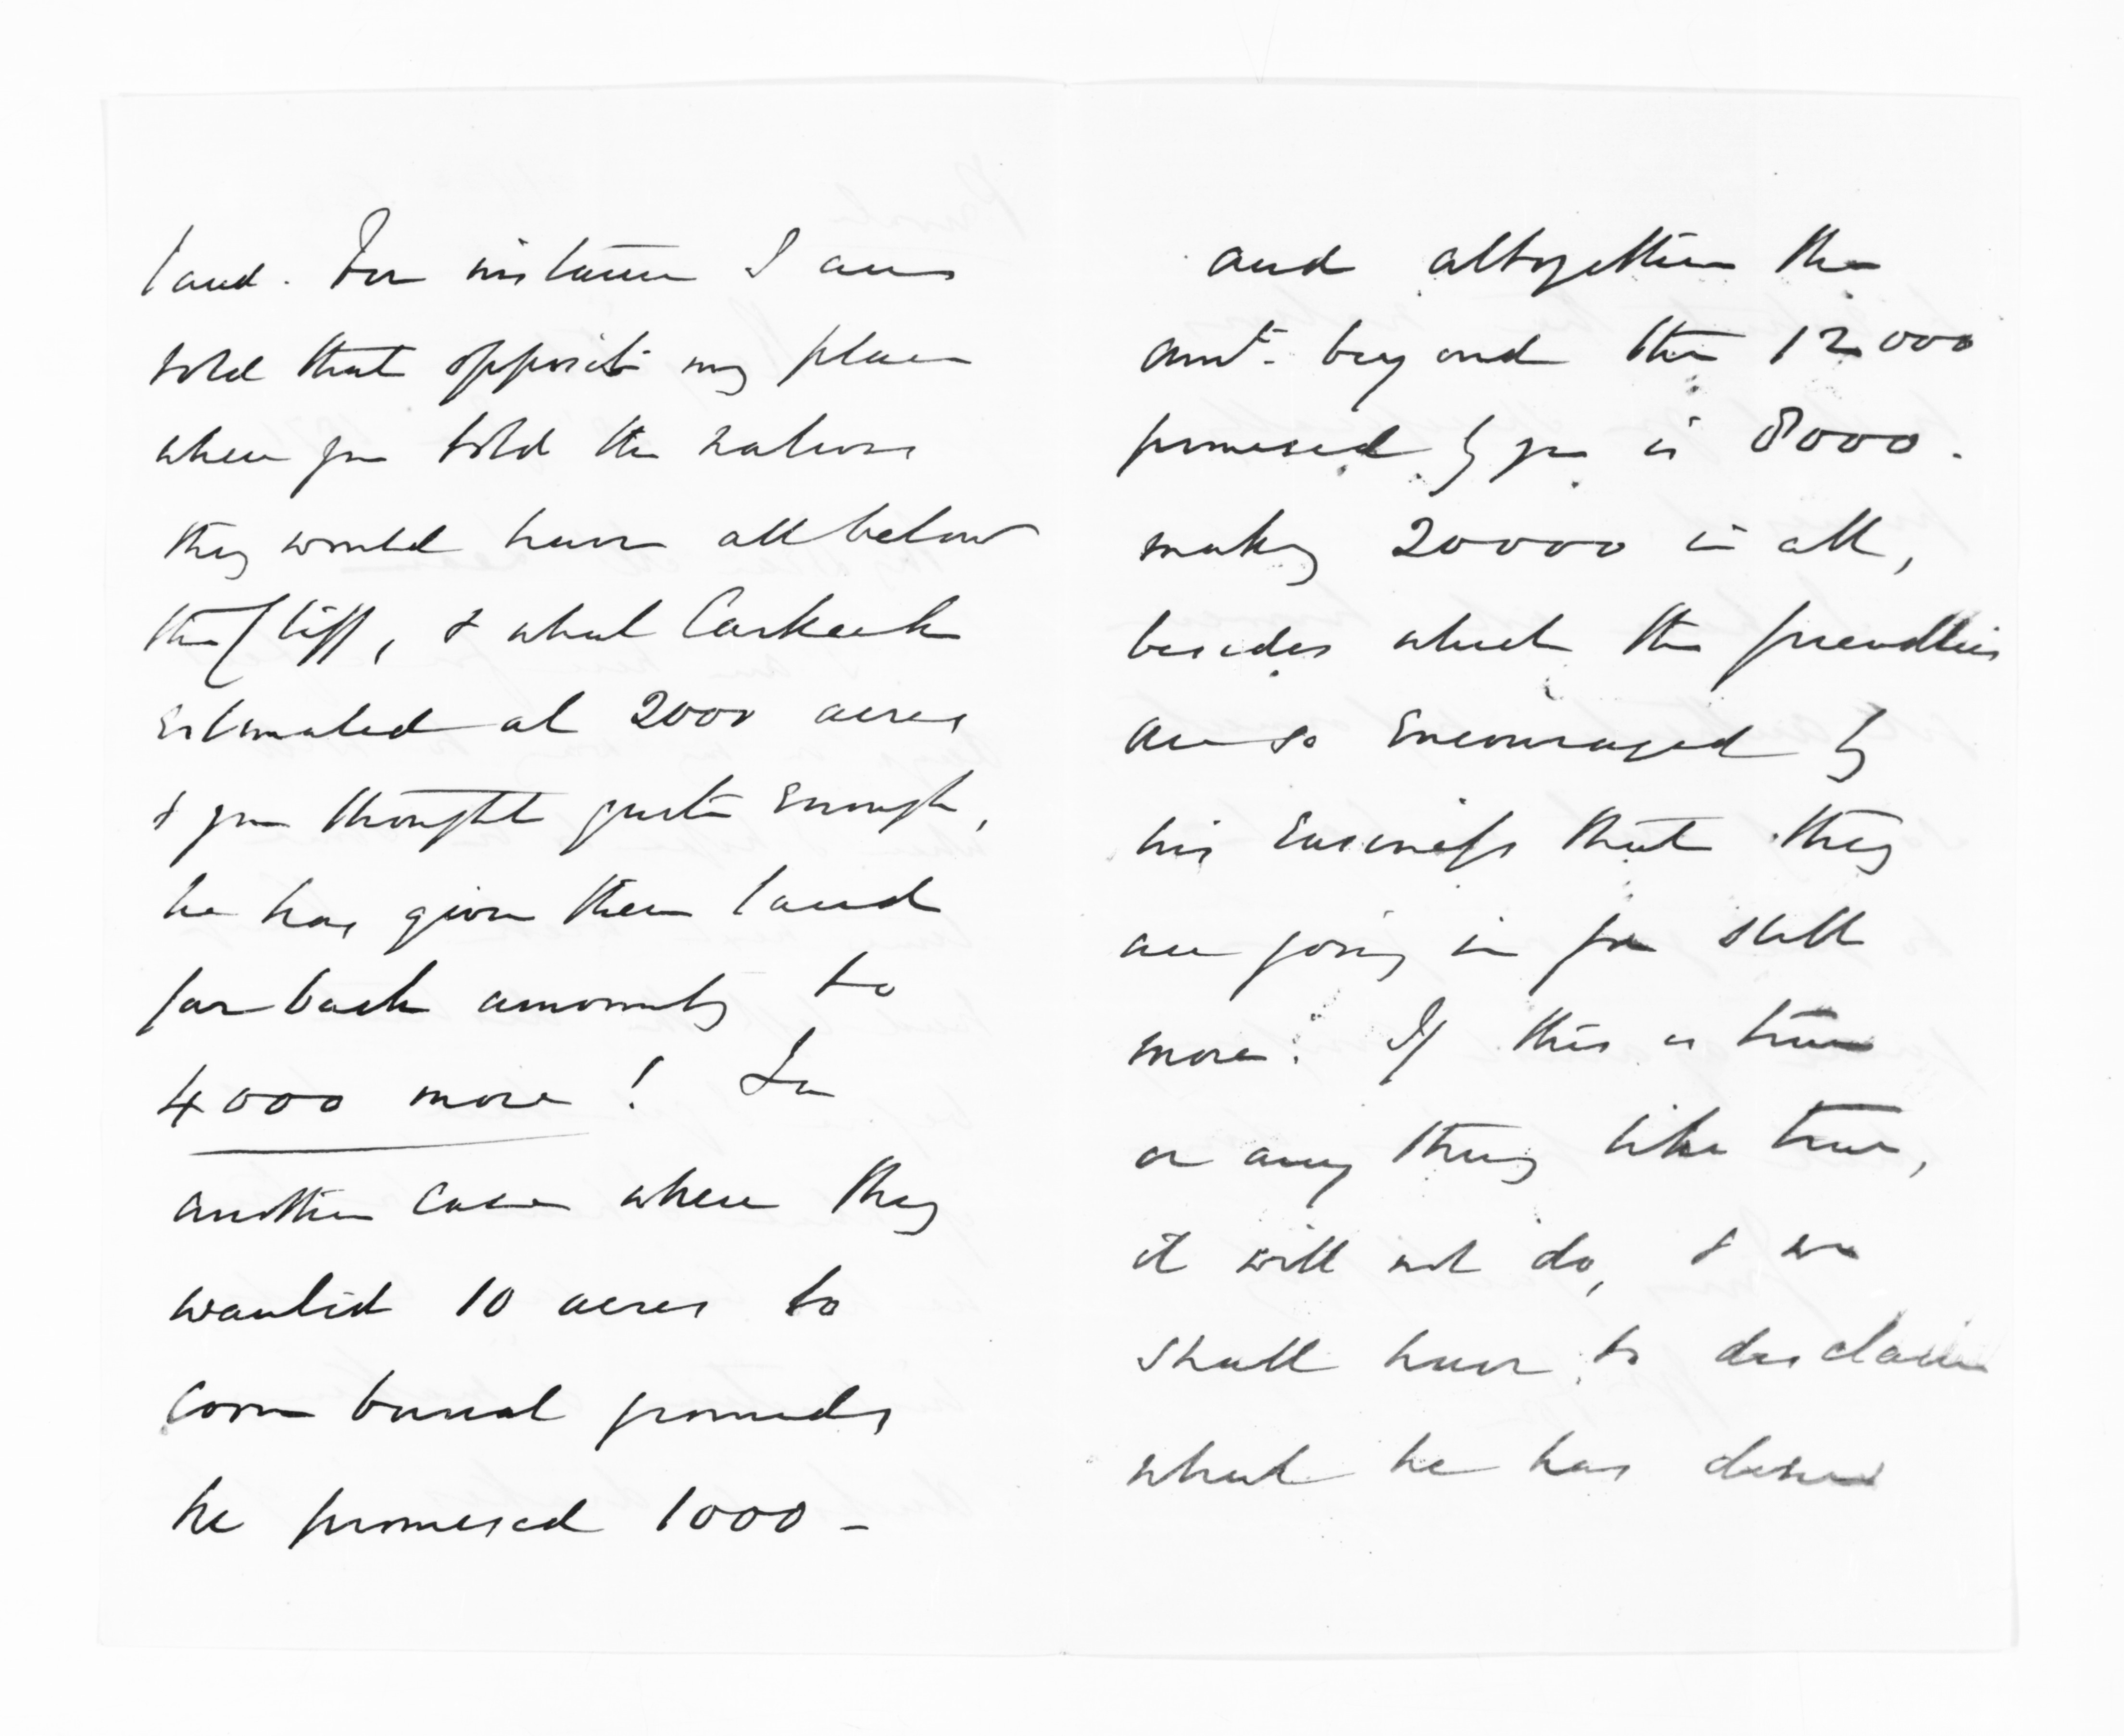 land. For instance I am
told that opposite my place
where you told the natives
they would have all below
the Cliff, & what Carkeek
estimated at 2000 acres
& you thought quite enough,
he has given them land
far back amounting to
4000 more! In
another case where they
wanted 10 acres to
cover burial grounds
he promised 1000 -
and altogether the
amt. beyond the 12000
promised by you is 8000.
making 20000 in all,
besides which the friendlies
are so encouraged by
his easiness that they
are going in for still
more. If this is true
or any thing like true,
it will not do, & we
shall have to disclaim
what he has done